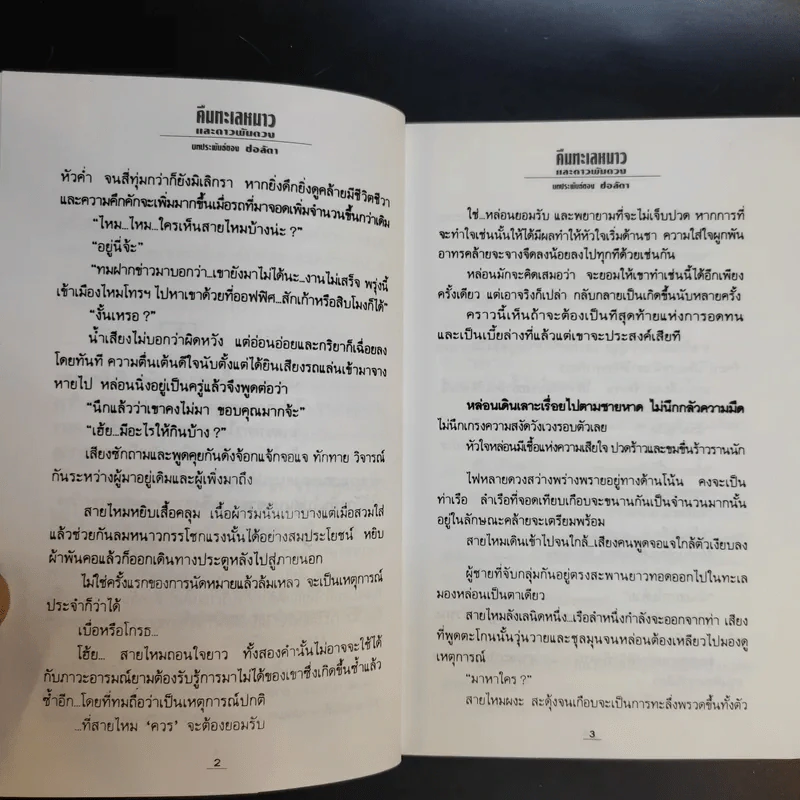 คืนทะเลหนาว
และดาวพันดวง
บทประพันธ์ของ ช่อลัดา
หัวค่ำ จนสี่ทุ่มกว่าก็ยังมิเลิกรา หากยิ่งดึกยิ่งดูคล้ายมีชีวิตชีวา
และความคึกคักจะเพิ่มมากขึ้นเมื่อรถที่มาจอดเพิ่มจำนวนขึ้นกว่าเดิม
“ไหม...ไหม...ใครเห็นสายไหมบ้างน่ะ ?”
“อยู่นี่จ้ะ”
“ทมฝากข่าวมาบอกว่า...เขายังมาไม่ได้นะ...งานไม่เสร็จ พรุ่งนี้
เข้าเมืองไหมโทรฯ ไปหาเขาด้วยที่ออฟฟิศ...สักเก้าหรือสิบโมงก็ได้”
“งั้นเหรอ ?”
น้ำเสียงไม่บอกว่าผิดหวัง แต่อ่อนอ่อยและกริยาก็เฉื่อยลง
โดยทันที ความตื่นเต้นดีใจนับตั้งแต่ได้ยินเสียงรถแล่นเข้ามาจาง
หายไป หล่อนนิ่งอยู่เป็นครู่แล้วจึงพูดต่อว่า
“นึกแล้วว่าเขาคงไม่มา ขอบคุณมากจ้ะ”
“เฮ้ย...มีอะไรให้กินบ้าง ?”
เสียงซักถามและพูดคุยกันดังจ้อกแจ้กจอแจ ทักทาย วิจารณ์
กันระหว่างผู้มาอยู่เดิมและผู้เพิ่งมาถึง
สายไหมหยิบเสื้อคลุม เนื้อผ้าร่มนั้นเบาบางแต่เมื่อสวมใส่
แล้วช่วยกันลมหนาวกรรโชกแรงนั้นได้อย่างสมประโยชน์ หยิบ
ผ้าพันคอแล้วก็ออกเดินทางประตูหลังไปสู่ภายนอก
ไม่ใช่ครั้งแรกของการนัดหมายแล้วล้มเหลว จะเป็นเหตุการณ์
ประจำก็ว่าได้
เบื่อหรือโกรธ...
โฮ้ย... สายไหมถอนใจยาว ทั้งสองคำนั้นไม่อาจจะใช้ได้
กับภาวะอารมณ์ยามต้องรับรู้การมาไม่ได้ของเขาซึ่งเกิดขึ้นซ้ำแล้ว
ซ้ำอีก...โดยที่ทมถือว่าเป็นเหตุการณ์ปกติ
...ที่สายไหม ‘ควร’ จะต้องยอมรับ
2
คืนทะเลหนาว
และดาวพันดวง
บทประพันธ์ของ ช่อลัดา
ใช่...หล่อนยอมรับ และพยายามที่จะไม่เจ็บปวด หากการที่
จะทำใจเช่นนั้นให้ได้มีผลทำให้หัวใจเริ่มด้านชา ความใส่ใจผูกพัน
อาทรคล้ายจะจางจืดลงน้อยลงไปทุกทีด้วยเช่นกัน
หล่อนมักจะคิดเสมอว่า จะยอมให้เขาทำเช่นนี้ได้อีกเพียง
ครั้งเดียว แต่เอาจริงก็เปล่า กลับกลายเป็นเกิดขึ้นนับหลายครั้ง
คราวนี้เห็นถ้าจะต้องเป็นที่สุดท้ายแห่งการอดทน
และเป็นเบี้ยล่างที่แล้วแต่เขาจะประสงค์เสียที
หล่อนเดินเลาะเรื่อยไปตามชายหาด ไม่นึกกลัวความมืด
ไม่นึกเกรงความสงัดวังเวงรอบตัวเลย
หัวใจหล่อนมีเชื้อแห่งความเสียใจ ปวดร้าวและขมขื่นร้าวรานนัก
ไฟหลายดวงสว่างพร่างพรายอยู่ทางด้านโน้น คงจะเป็น
ท่าเรือ ลำเรือที่จอดเทียบเกือบจะขนานกันเป็นจำนวนมากนั้น
อยู่ในลักษณะคล้ายจะเตรียมพร้อม
สายไหมเดินเข้าไปจนใกล้...เสียงคนพูดจอแจใกล้ตัวเงียบลง
ผู้ชายที่จับกลุ่มกันอยู่ตรงสะพานยาวทอดออกไปในทะเล
มองหล่อนเป็นตาเดียว
สายไหมลังเลนิดหนึ่ง...เรือลำหนึ่งกำลังจะออกจากท่า เสียง
ที่พูดตะโกนนั้นวุ่นวายและชุลมุนจนหล่อนต้องเหลียวไปมองดู
เหตุการณ์
“มาหาใคร ?”
สายไหมผงะ สะดุ้งจนเกือบจะเป็นการทะลึ่งพรวดขึ้นทั้งตัว
3